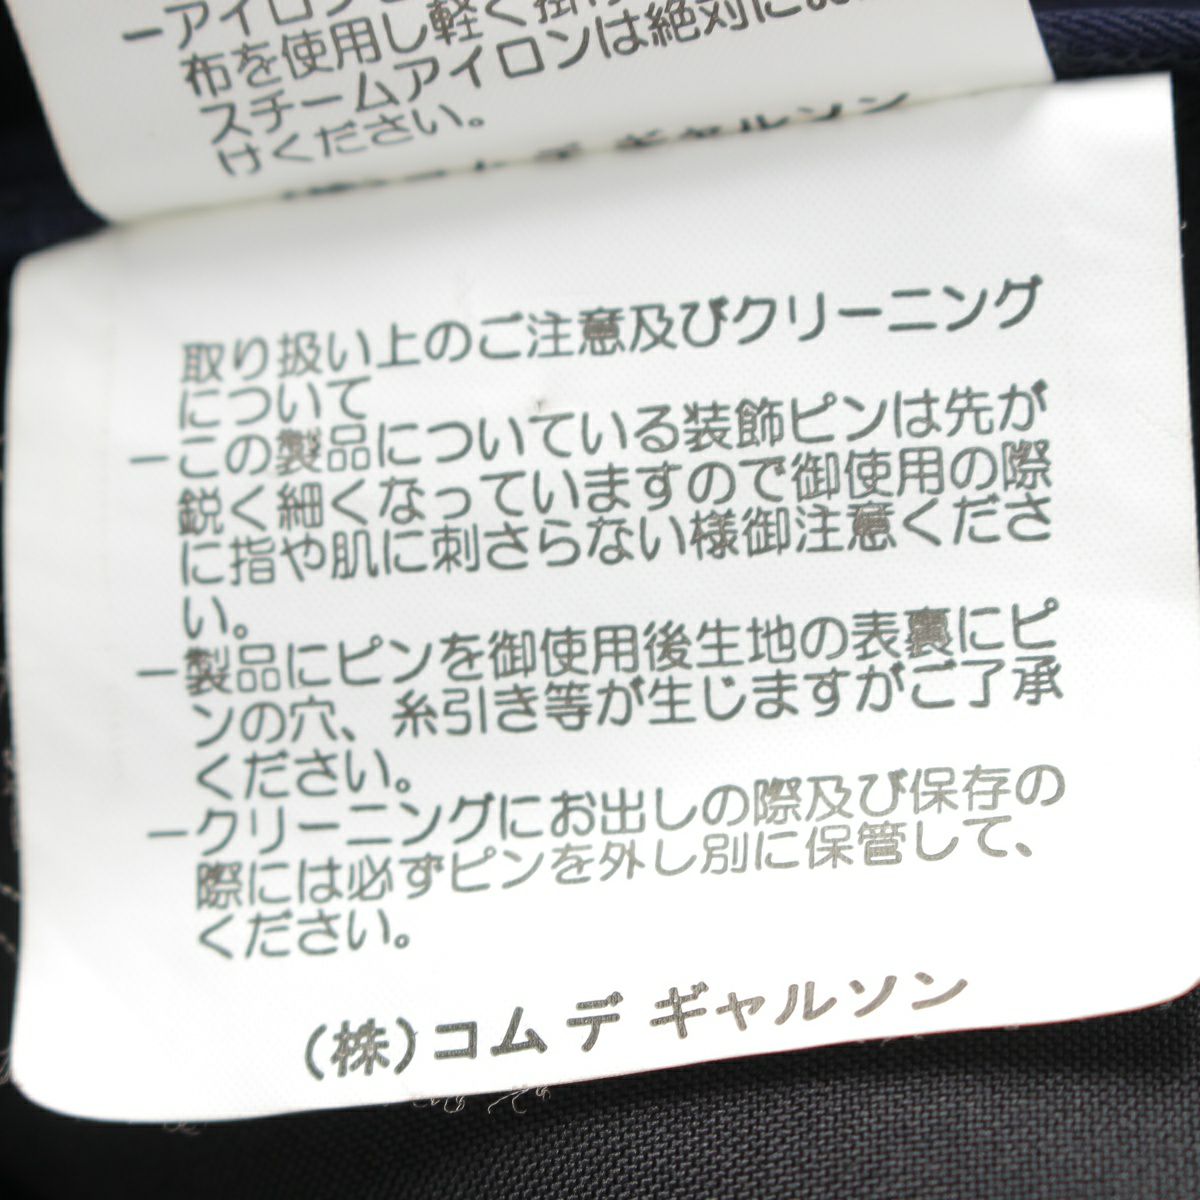 ーアイロン
布を使用し軽く掛け
スチームアイロンは絶対にお
けください。
ム デ ギャルソン
取り扱い上のご注意及びクリーニング
について
ーこの製品についている装飾ピンは先が
鋭く細くなっていますので御使用の際
に指や肌に刺さらない様御注意くださ
い。
ー製品にピンを御使用後生地の表裏にピ
ンの穴、糸引き等が生じますがご了承
ください。
ークリーニングにお出しの際及び保存の
際には必ずピンを外し別に保管して、
ください。
(株)コム デ ギャルソン